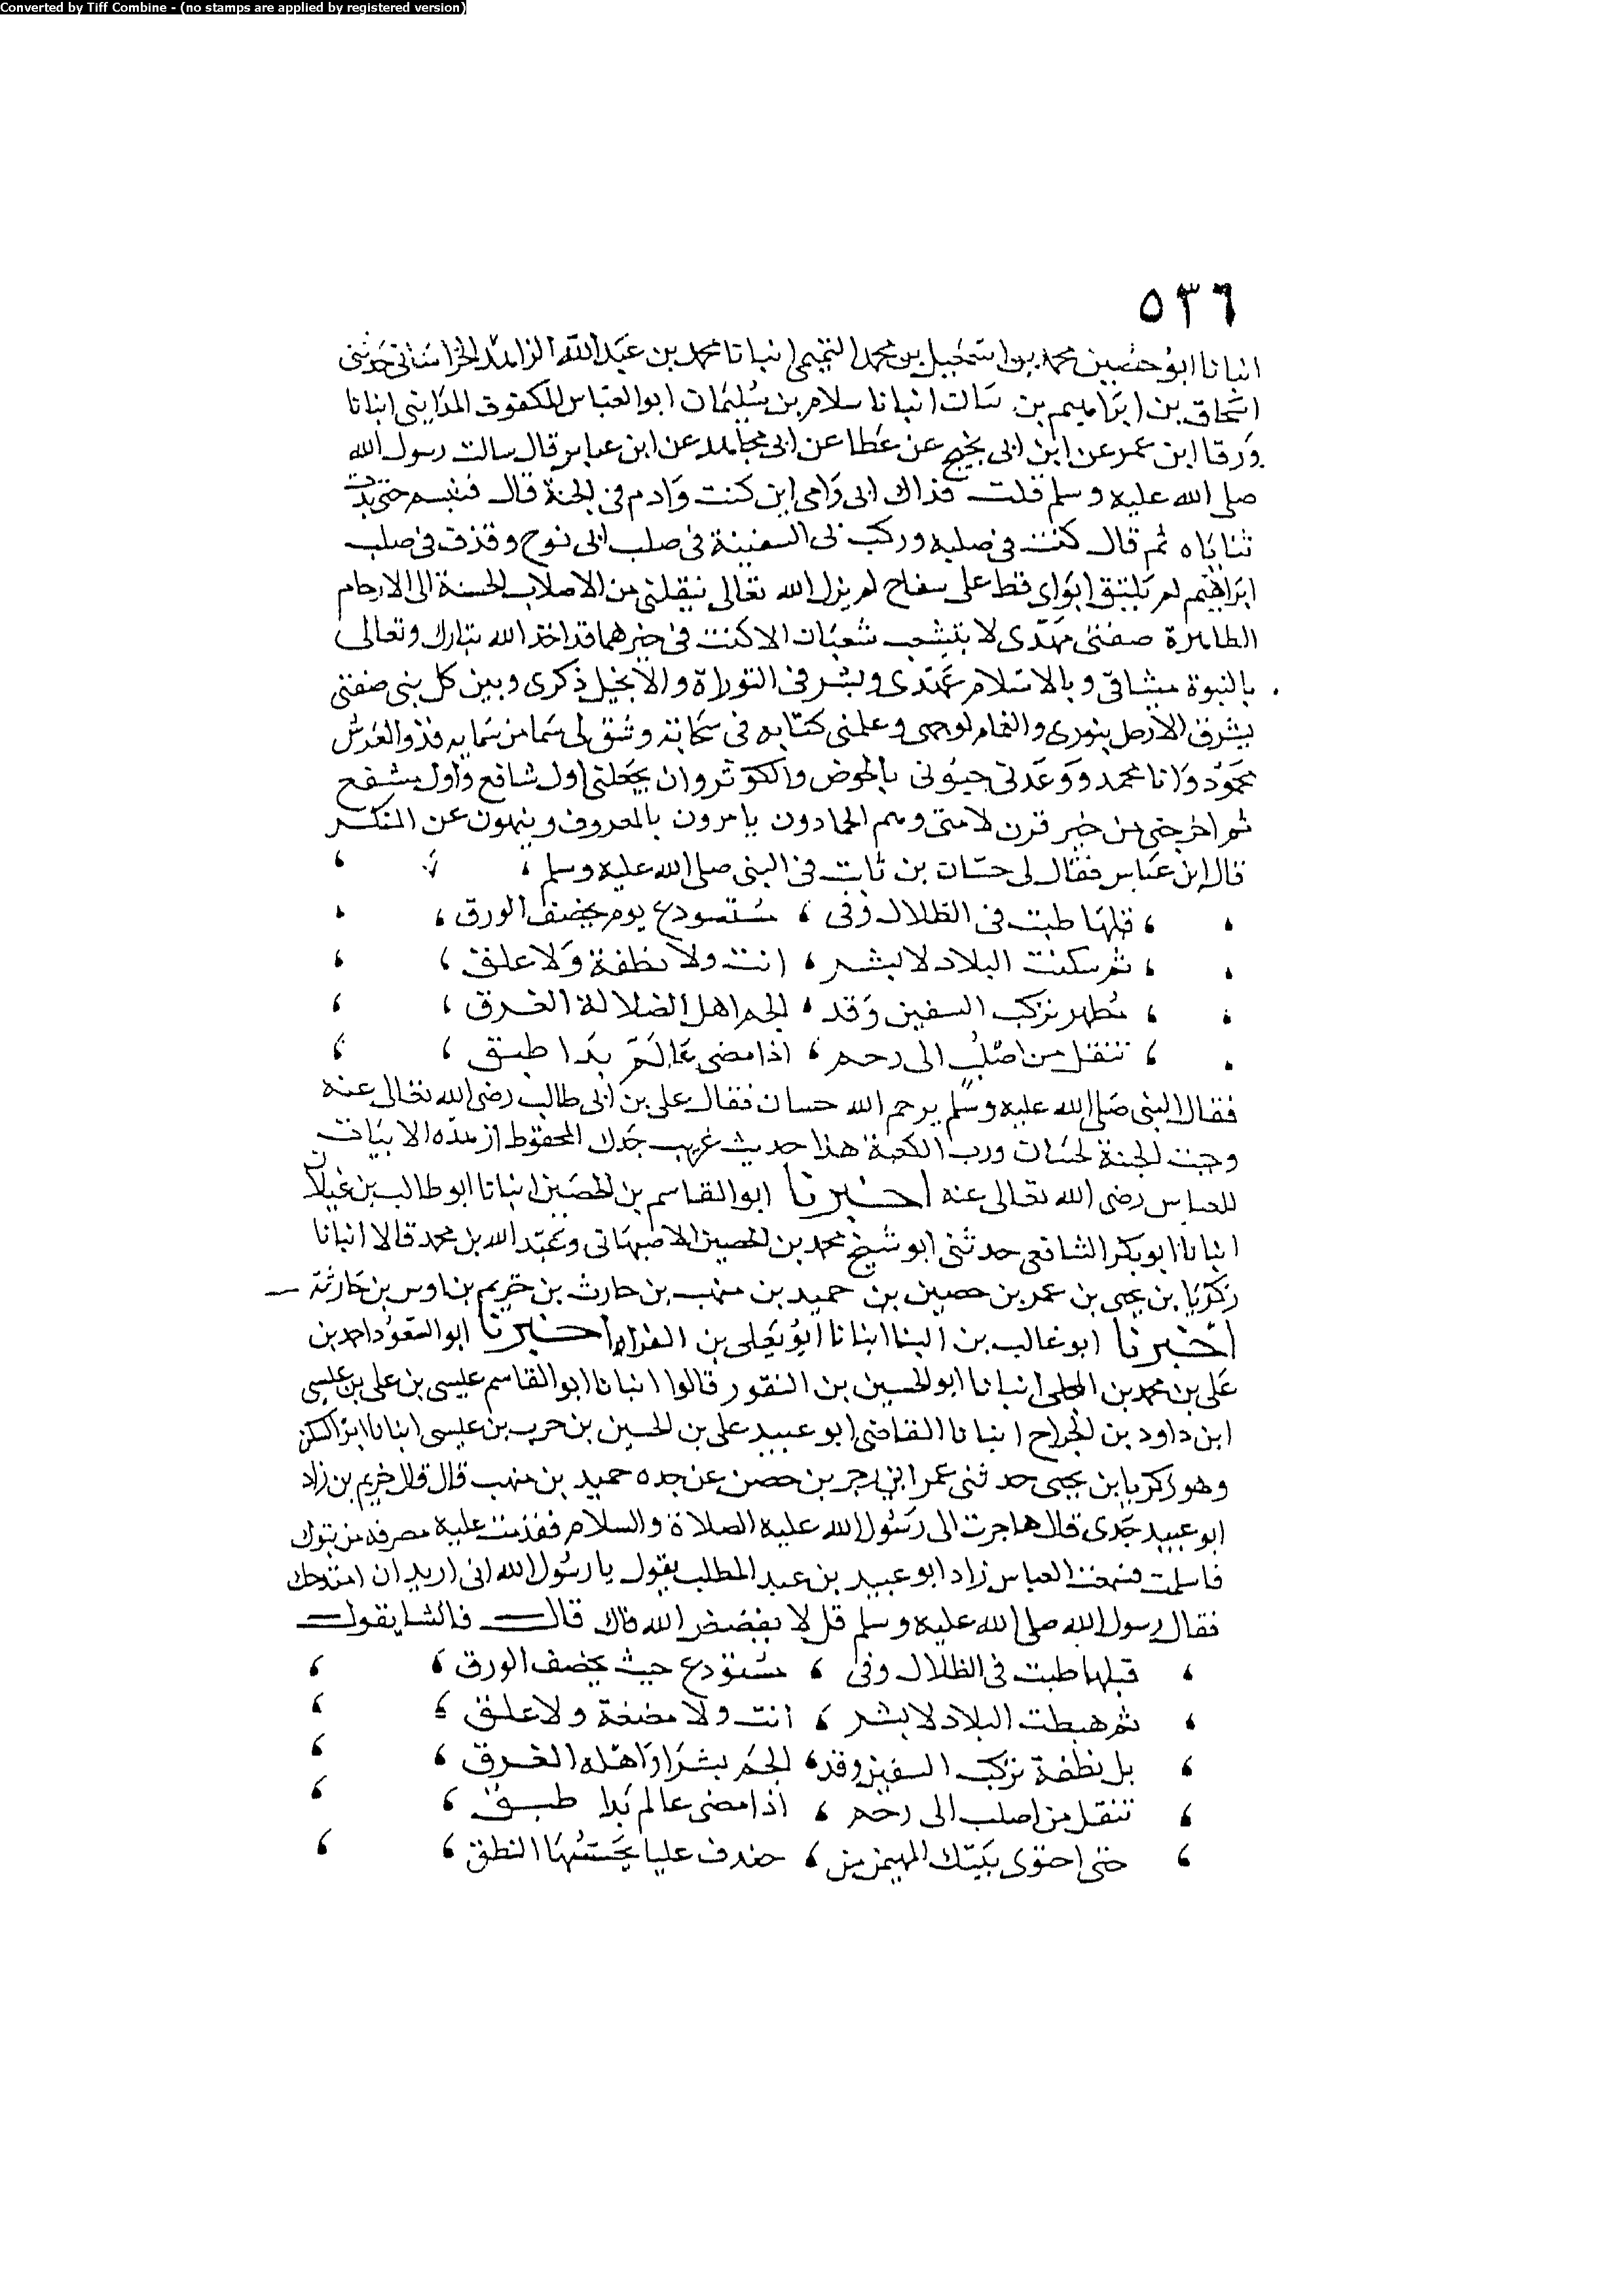 Converted by Tiff Combine - (no stamps are applied by registered version)
٥٣٦
انبانا ابو حصين محمد بن اسمعيل بن محمد التميمي انبانا محمد بن عبد الله الزاهد الخراساني حدثني
اسحاق بن ابراهيم بن سنان انبانا سلام بن سليمان ابو العباس المكفوف المدايني انبانا
ورقا ابن عمر عن ابن ابي نجيح عن عطا عن ابي مجاهد عن ابن عباس قال سالت رسول الله
صلى الله عليه وسلم قلت فداك ابي وامي اين كنت وادم في الجنة قال فتبسم حتى بدت
ثناياه ثم قال كنت في صلبه وركب بي السفينة في صلب ابي نوح وقذف في صلب
ابراهيم لم يلتق ابواي قط على سفاح لم يزل الله تعالى ينقلني من الاصلاب الحسنة الى الارحام
الطاهرة صفتي مهدي لا يتشعب شعبان الا كنت في خيرهما قد اخذ الله تبارك وتعالى
بالنبوة ميثاقي وبالاسلام عهدي وبشر في التوراة والانجيل ذكري وبين كل نبي صفتي
يشرق الارض بنوري والغمام لوجهي وعلمني كتابه في سحابه وشق لي اسما من سمايه فذو العرش
محمود وانا محمد ووعدني يحبوني بالحوض والكوثر وان يجعلني اول شافع واول مشفع
ثم اخرجني من خير قرن لامتي وهم الحمادون يامرون بالمعروف وينهون عن المنكر
قال ابن عباس فقال لي حسان بن ثابت في النبي صلى الله عليه وسلم
قبلها طبت في الظلال وفي ، مستودع يوم يخصف الورق
ثم سكنت البلاد لا بشر ، انت ولا نطفة ولا علق
مطهر تركب السفين وقد ، الجم اهل الضلالة الغرق
تنقل من اصلب الى رحم ، اذا مضى عالم بدا طبق
فقال النبي صلى الله عليه وسلم يرحم الله حسان فقال علي بن ابي طالب رضي الله تعالى عنه
وجبت الجنة لحسان ورب الكعبة هذا حديث غريب جدك المحفوظ ان هذه الابيات
للعباس رضي الله تعالى عنه اخبرنا ابو القاسم بن الحصين انبانا ابو طالب بن غيلان
انبانا ابو بكر الشافعي حدثني ابو شيخ محمد بن الحصين الاصبهاني وعبد الله بن محمد قالا انبانا
زكريا بن يحيى بن عمر بن حصين بن حميد بن منهب بن حارث بن خريم بن اوس بن حارثة
اخبرنا ابو غالب بن البنا انبانا ابو يعلى بن الفراء اخبرنا ابو السعود احمد بن
علي بن محمد بن المجلي انبانا ابو الحسين بن النقور قالوا انبانا ابو القاسم عيسى بن علي بن عيسى
ابن داود بن الجراح انبانا القاضي ابو عبيد علي بن الحسين بن حرب بن عيسى انبانا ابو السكن
وهو زكريا بن يحيى حدثني عمر ابي زجر بن حصن عن جده حميد بن منهب قال قال خريم بن زاد
ابو عبيد جدي قال هاجرت الى رسول الله عليه الصلاة والسلام فقدمت عليه مصرفه من تبوك
فاسلمت فسمعت العباس زاد ابو عبيد بن عبد المطلب يقول يا رسول الله اني اريد ان امتدحك
فقال رسول الله صلى الله عليه وسلم قل لا يفضض الله فاك قال فانشا يقول
قبلها طبت في الظلال وفي ، مستودع حيث يخصف الورق
ثم هبطت البلاد لا بشر ، انت ولا مضغة ولا علق
بل نطفة تركب السفين وقد ، الجم بشرا واهله الغرق
تنقل من اصلب الى رحم ، اذا مضى عالم بدا طبق
حتى احتوى بيتك المهيمن من ، خندف عليا تحتها النطق